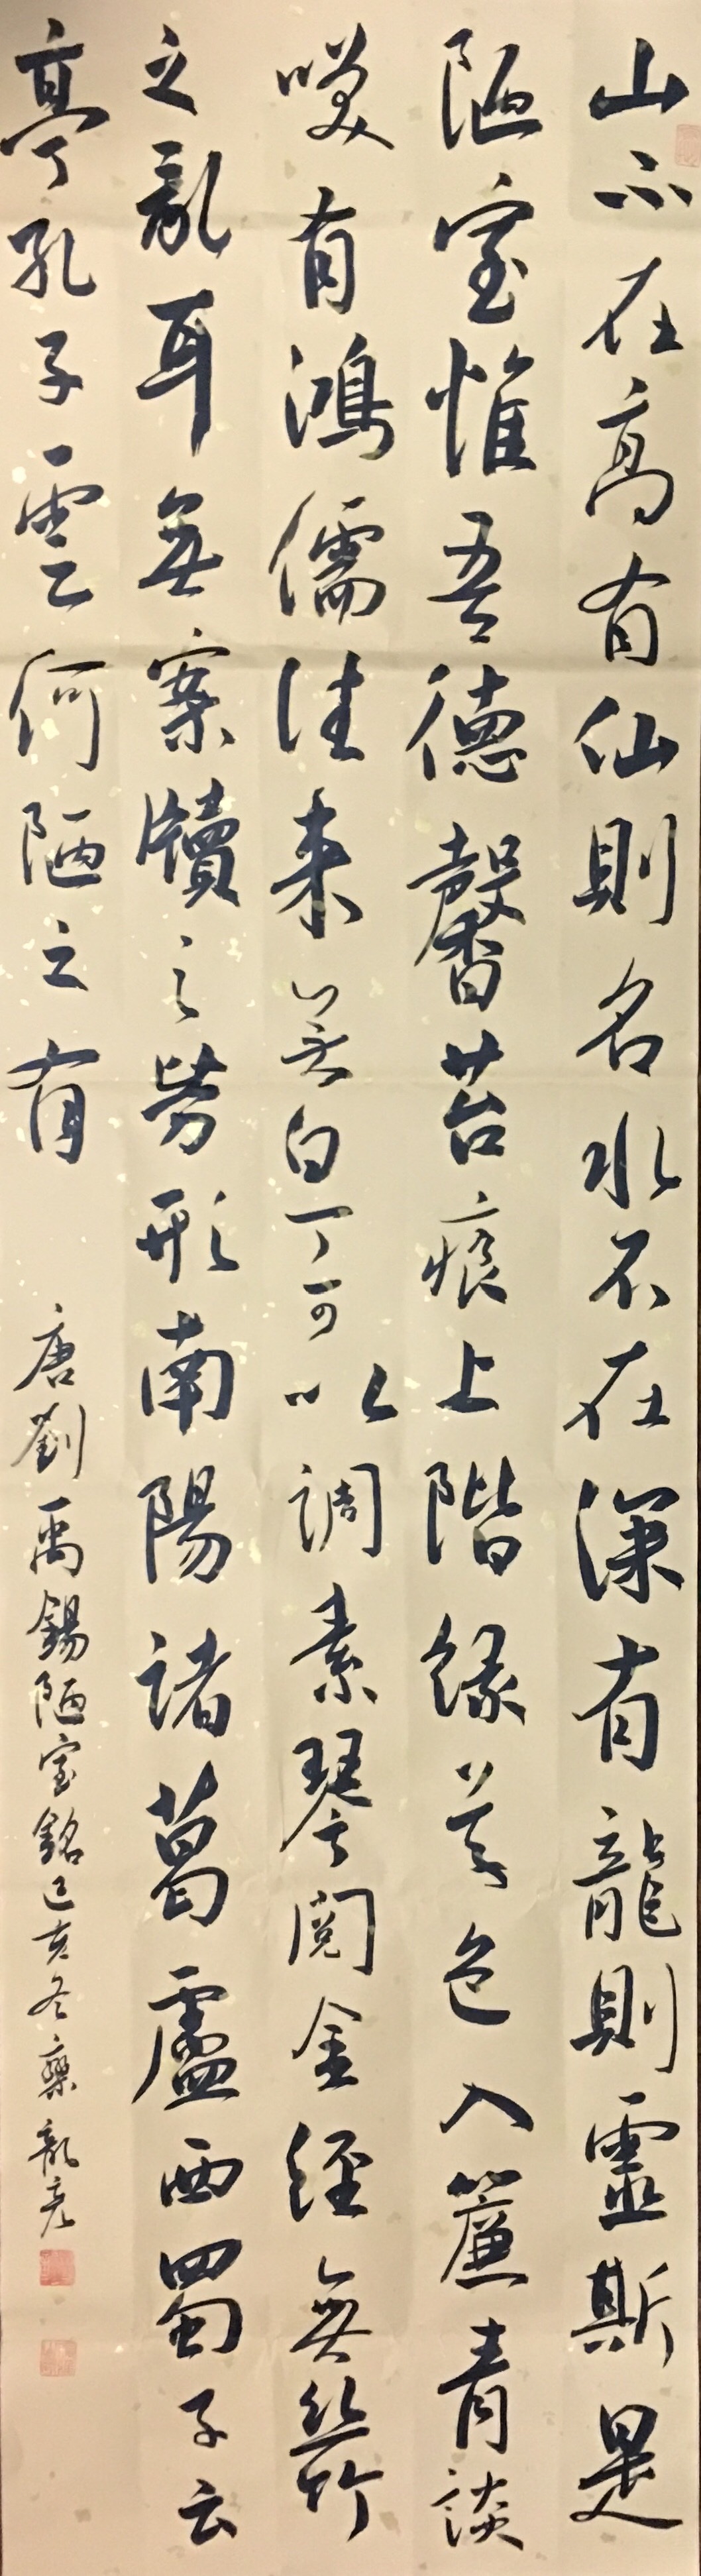 山不在高有仙則名水不在深有龍則靈斯是
陋室惟吾德馨苔痕上階緑草色入簾青談
唉有鴻儒往来無白丁可以調素琴閱金經無絲竹
之亂耳無案牘之勞形南陽諸葛廬西蜀子云
亭孔子雲何陋之有
唐劉禹錫陋室銘己亥冬